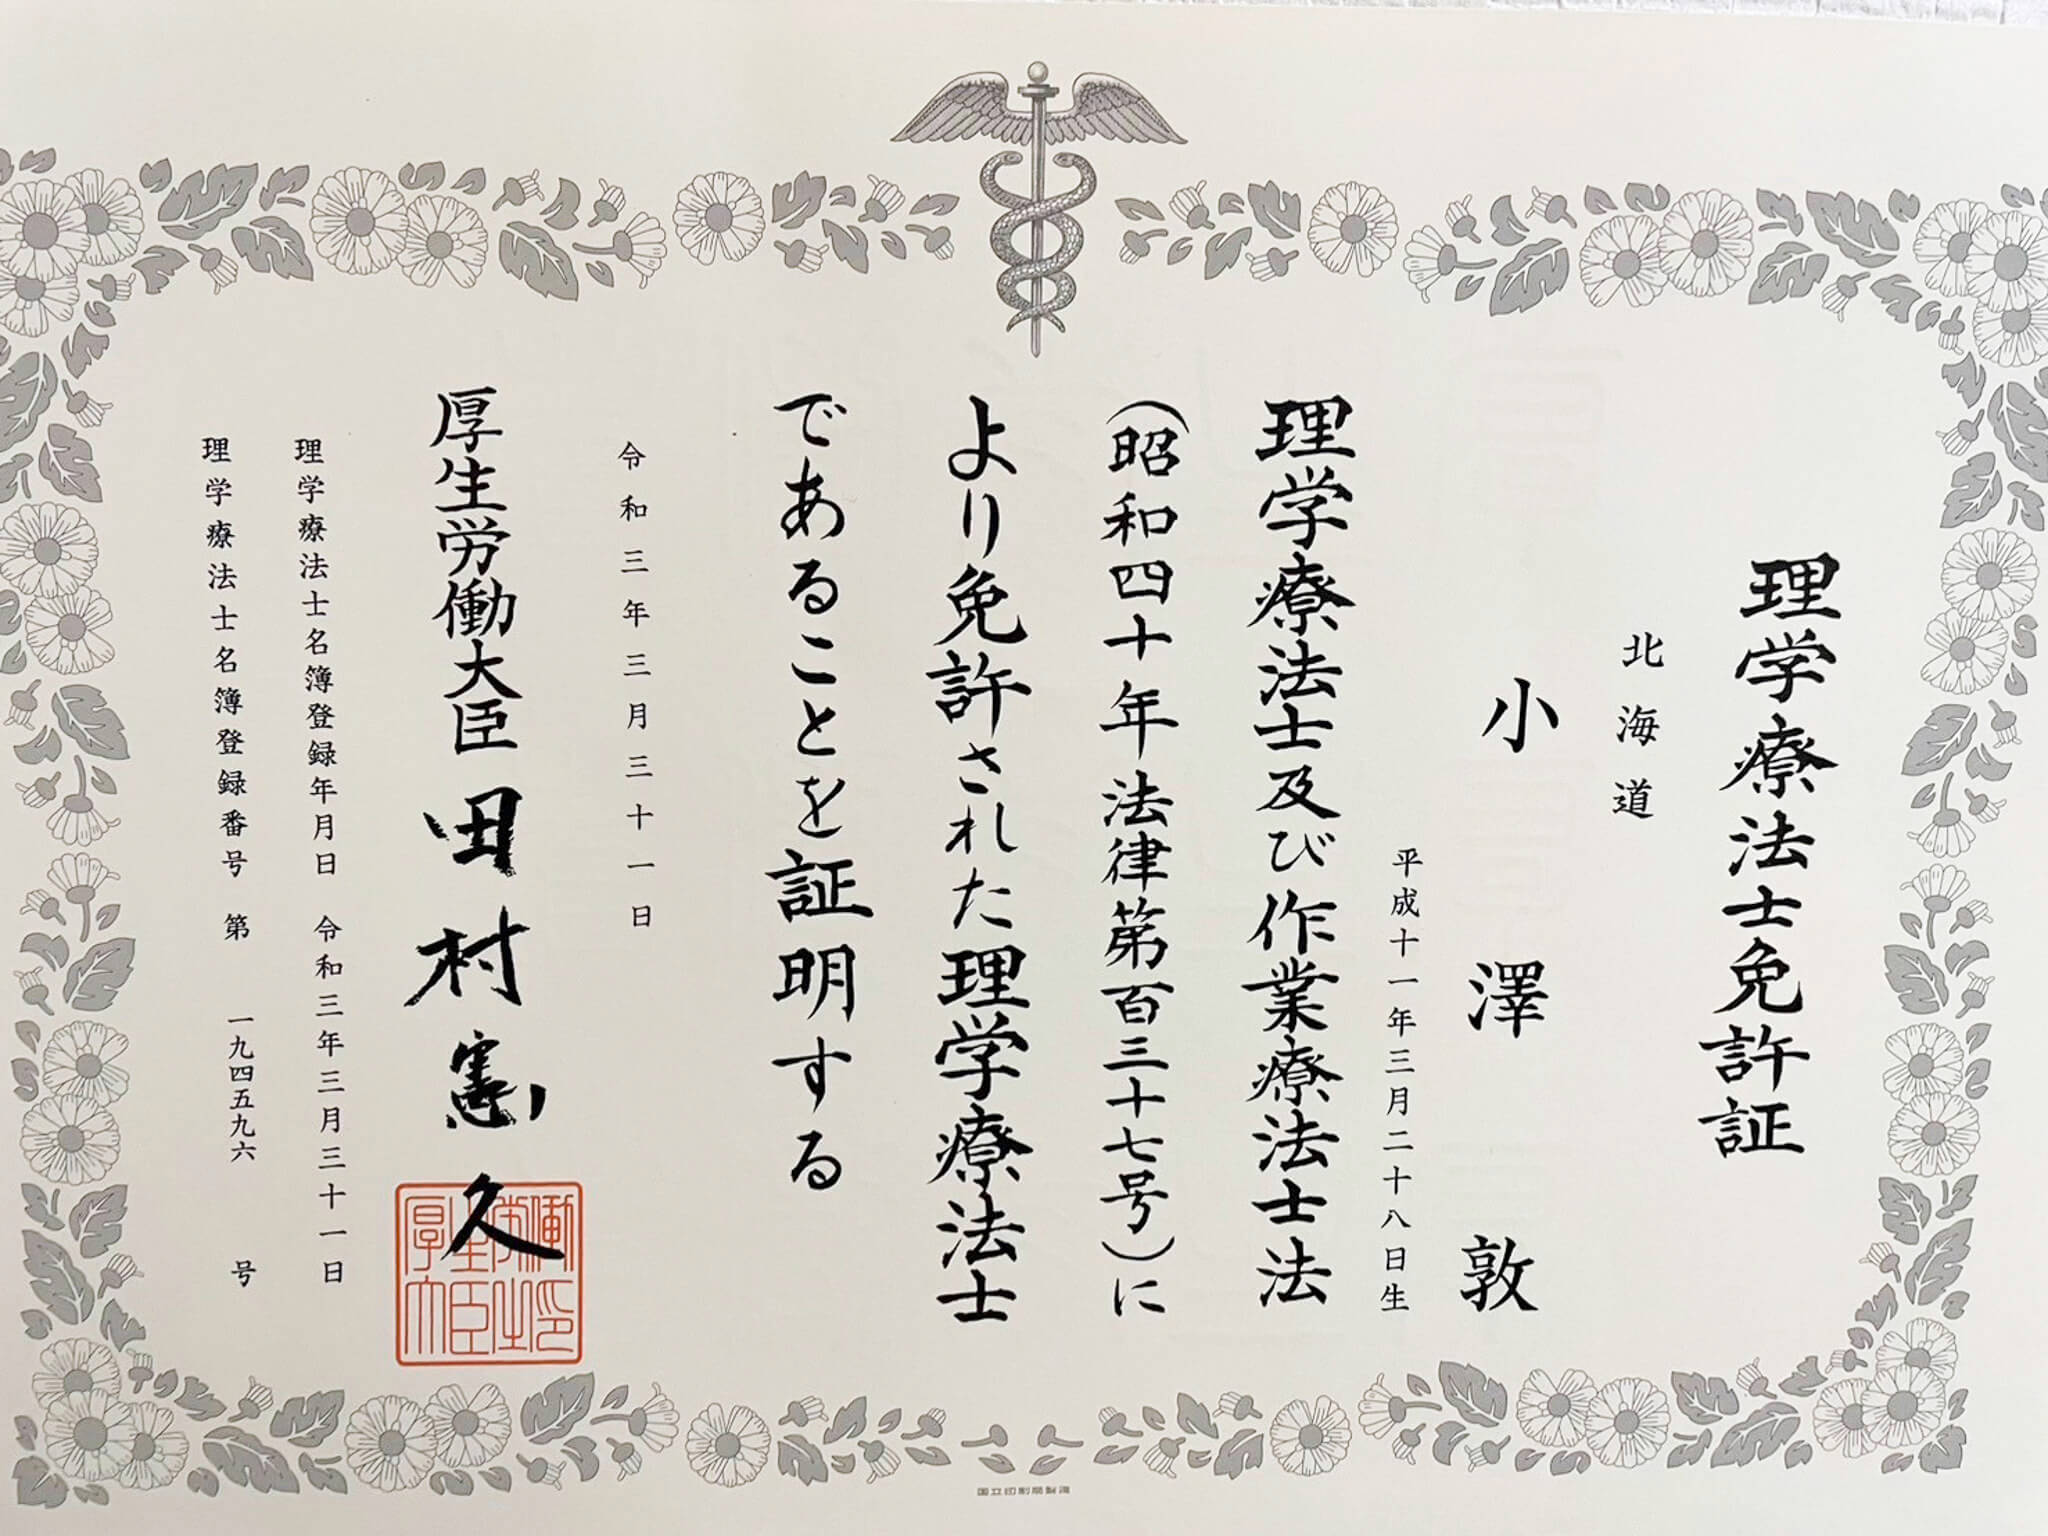 理学療法士免許証
北海道
小澤敦
平成十一年三月二十八日生
理学療法士及び作業療法士法
(昭和四十年法律第百三十七号)に
より免許された理学療法士
であることを証明する
令和三年三月三十一日
厚生労働大臣 田村憲久
理学療法士名簿登録年月日 令和三年三月三十一日
理学療法士名簿登録番号 第 一九四五九六 号
国立印刷局製造